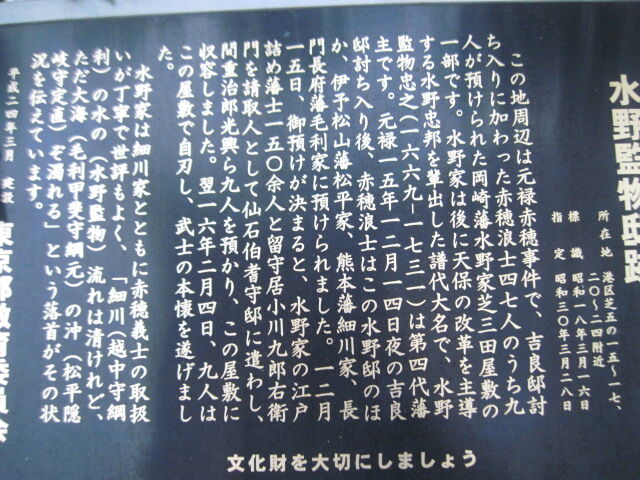 水野監物邸跡
所在地 港区芝五の一五～一七、
二〇～二四附近
標識 昭和一八年三月一六日
指定 昭和三〇年三月二八日
この地周辺は元禄赤穂事件で、吉良邸討
ち入りに加わった赤穂浪士四七人のうち九
人が預けられた岡崎藩水野家芝三田屋敷の
一部です。水野家は後に天保の改革を主導
する水野忠邦を輩出した譜代大名で、水野
監物忠之(一六六九―一七三一)は第四代藩
主です。元禄一五年一二月一四日夜の吉良
邸討ち入り後、赤穂浪士はこの水野邸のほ
か、伊予松山藩松平家、熊本藩細川家、長
門長府藩毛利家に預けられました。一二月
一五日、御預けが決まると、水野家の江戸
詰め藩士一五〇余人と留守居小川九郎右衛
門を請取人として仙石伯耆守邸に遣わし、
間重治郎光興ら九人を預かり、この屋敷に
収容しました。翌一六年二月四日、九人は
この屋敷で自刃し、武士の本懐を遂げまし
た。
水野家は細川家とともに赤穂義士の取扱
いが丁寧で世評もよく、「細川(越中守綱
利)の水の(水野監物)流れは清けれど、
ただ大海(毛利甲斐守綱元)の沖(松平隠
岐守定直)ぞ濁れる」という落首がその状
況を伝えています。
平成二四年三月 建設
東京都教育委員会
文化財を大切にしましょう